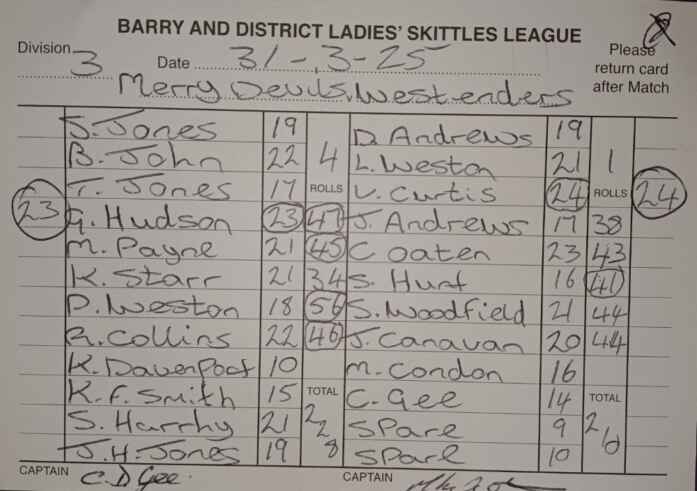 BARRY AND DISTRICT LADIES' SKITTLES LEAGUE
Division 3 Date 31-3-25 Please return card after Match
Merry Devils, Westenders
J. Jones 19 D. Andrews 19
B. John 22 4 L. Weston 21 1
T. Jones 17 ROLLS V. Curtis 24 ROLLS 24
23 G. Hudson 23 47 J. Andrews 17 38
M. Payne 21 45 C Oaten 23 43
K. Starr 21 34 S. Hunt 16 41
D. Weston 18 56 S. Woodfield 21 44
R. Collins 22 46 J. Canavan 20 44
K. Davenport 10 M. Condon 16
K. F. Smith 15 TOTAL C. Gee 14 TOTAL
S. Harrhy 21 228 Spare 9 210
J. H. Jones 19 Spare 10
CAPTAIN C. D Gee. CAPTAIN